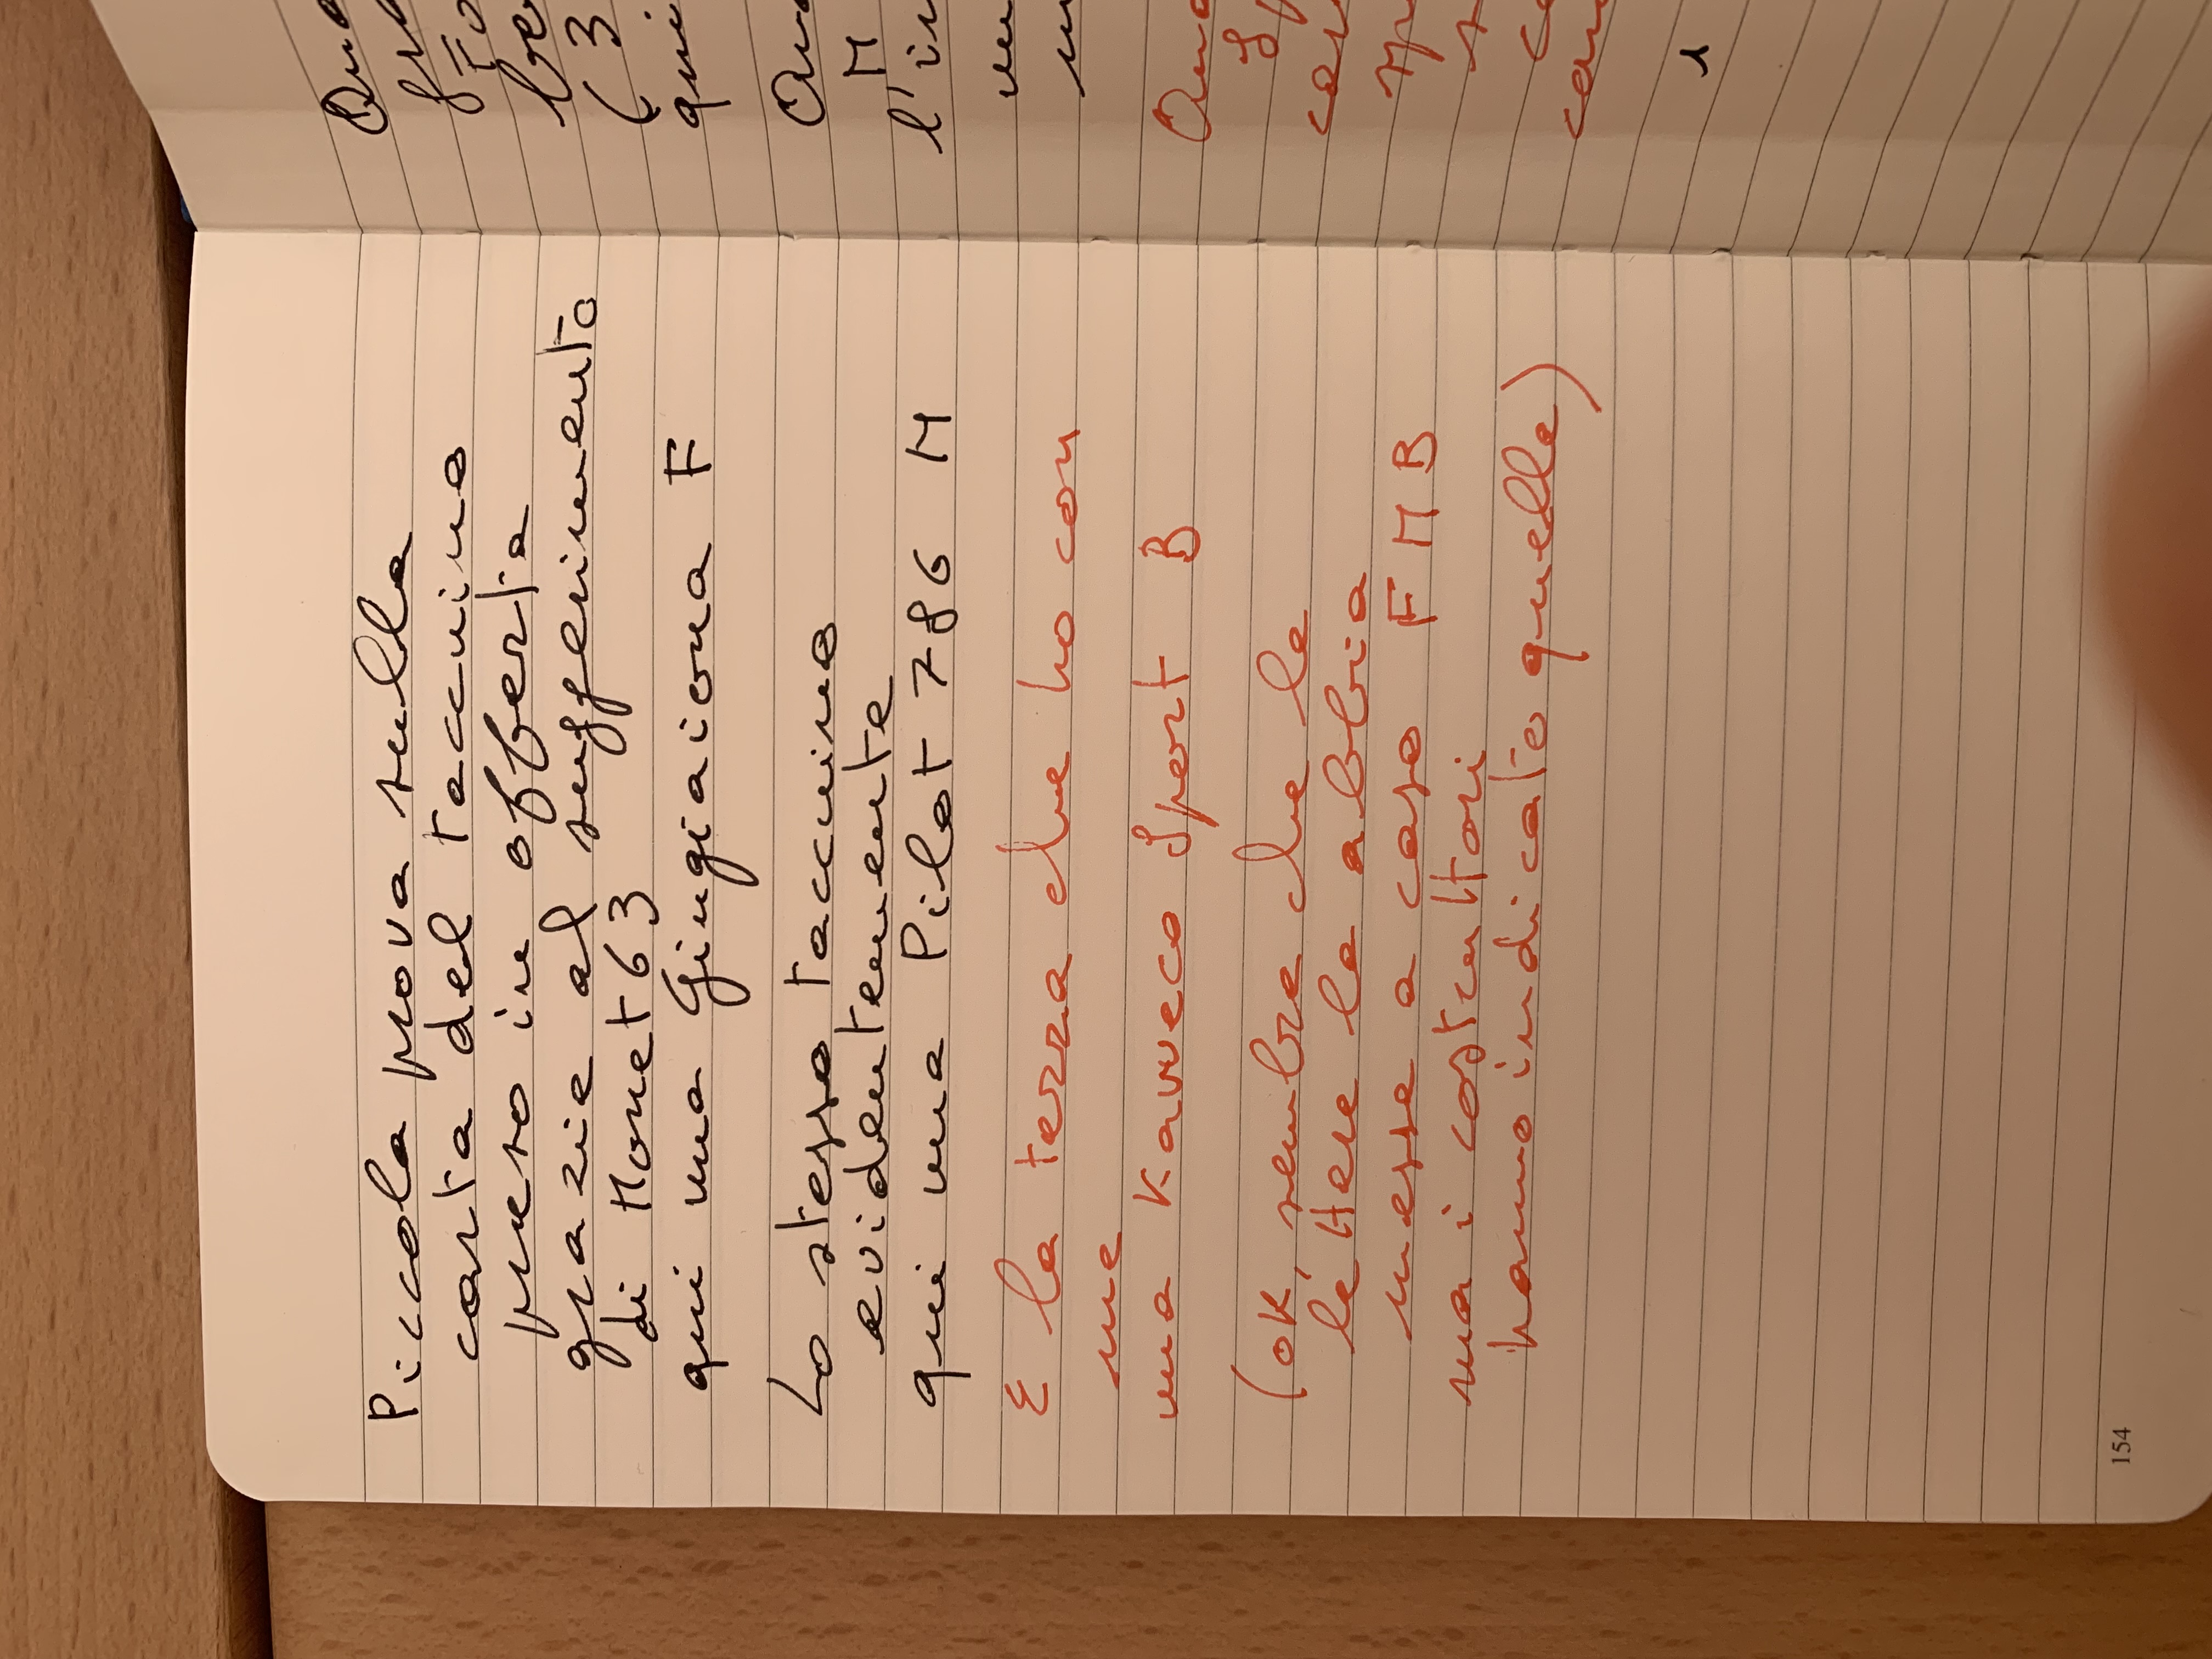 Piccola prova sulla
carta del taccuino
preso in offerta
grazie al suggerimento
di Monet63
qui una Giugiaiona F
Lo stesso taccuino
evidentemente
qui una Pilot 78G M
E la terza che ho con
me
una Kaweco Sport B
(ok, sembra che le
lettere le abbia
messe a caso F M B
ma i costruttori
hanno indicato quelle)
154
l'in
1